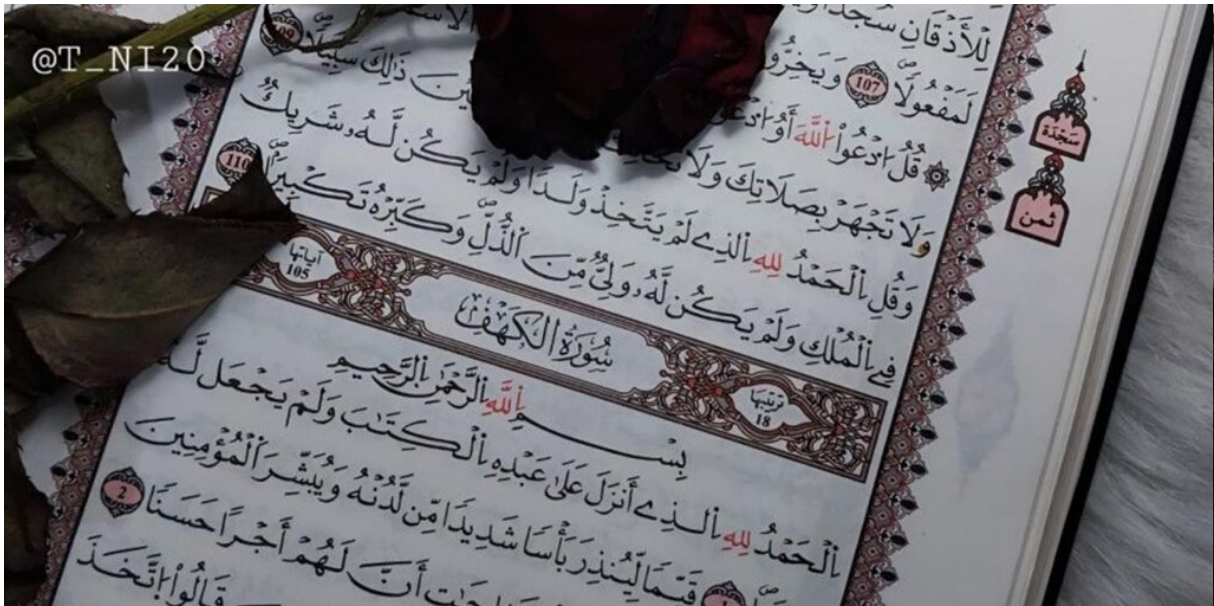 @T_NI20
لِلْأَذْقَانِ سُجَّدًا
لَمَفْعُولًا 107 وَيَخِرُّونَ 109
قُلُ اُدْعُوا۟ اُللَّهَ أَوُ اُدْعُوا۟
وَلَا تَجْهَرْ بِصَلَاتِكَ وَلَا ذَٰلِكَ سَبِيلًا
وَقُلِ اِلْحَمْدُ لِلهِ اِلذِے لَمْ يَتَّخِذْ وَلَدًا وَلَمْ يَكُن لَّهُۥ شَرِيكٌ
فِے اِلْمُلْكِ وَلَمْ يَكُن لَّهُۥ وَلِيٌّ مِّنَ اَلذُّلِّ وَكَبِّرْهُ تَكْبِيرًا 110
سجدة
ثمن
ترتيبها 18 سُورَةُ الكَهْفِ آياتها 105
بِسْمِ اِللَّهِ اِلرَّحْمَٰنِ اِلرَّحِيمِ
اِلْحَمْدُ لِلهِ اِلذِے أَنزَلَ عَلَىٰ عَبْدِهِ اِلْكِتَٰبَ وَلَمْ يَجْعَل لَّهُۥ
1 قَيِّمًا لِّيُنذِرَ بَأْسًا شَدِيدًا مِّن لَّدُنْهُ وَيُبَشِّرَ اَلْمُؤْمِنِينَ
أَنَّ لَهُمْ أَجْرًا حَسَنًا 2
قَالُوا۟ اُتَّخَذَ